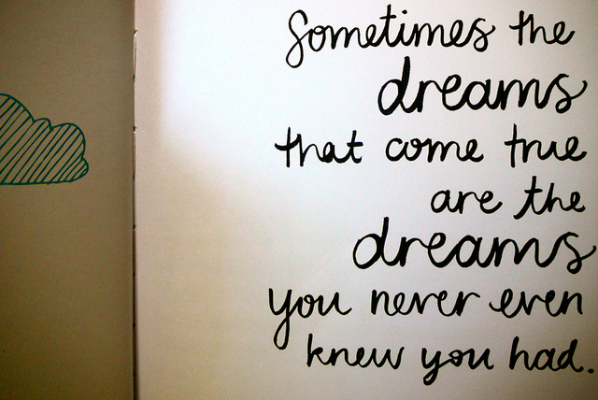 Sometimes the
dreams
that come true
are the
dreams
you never even
knew you had.